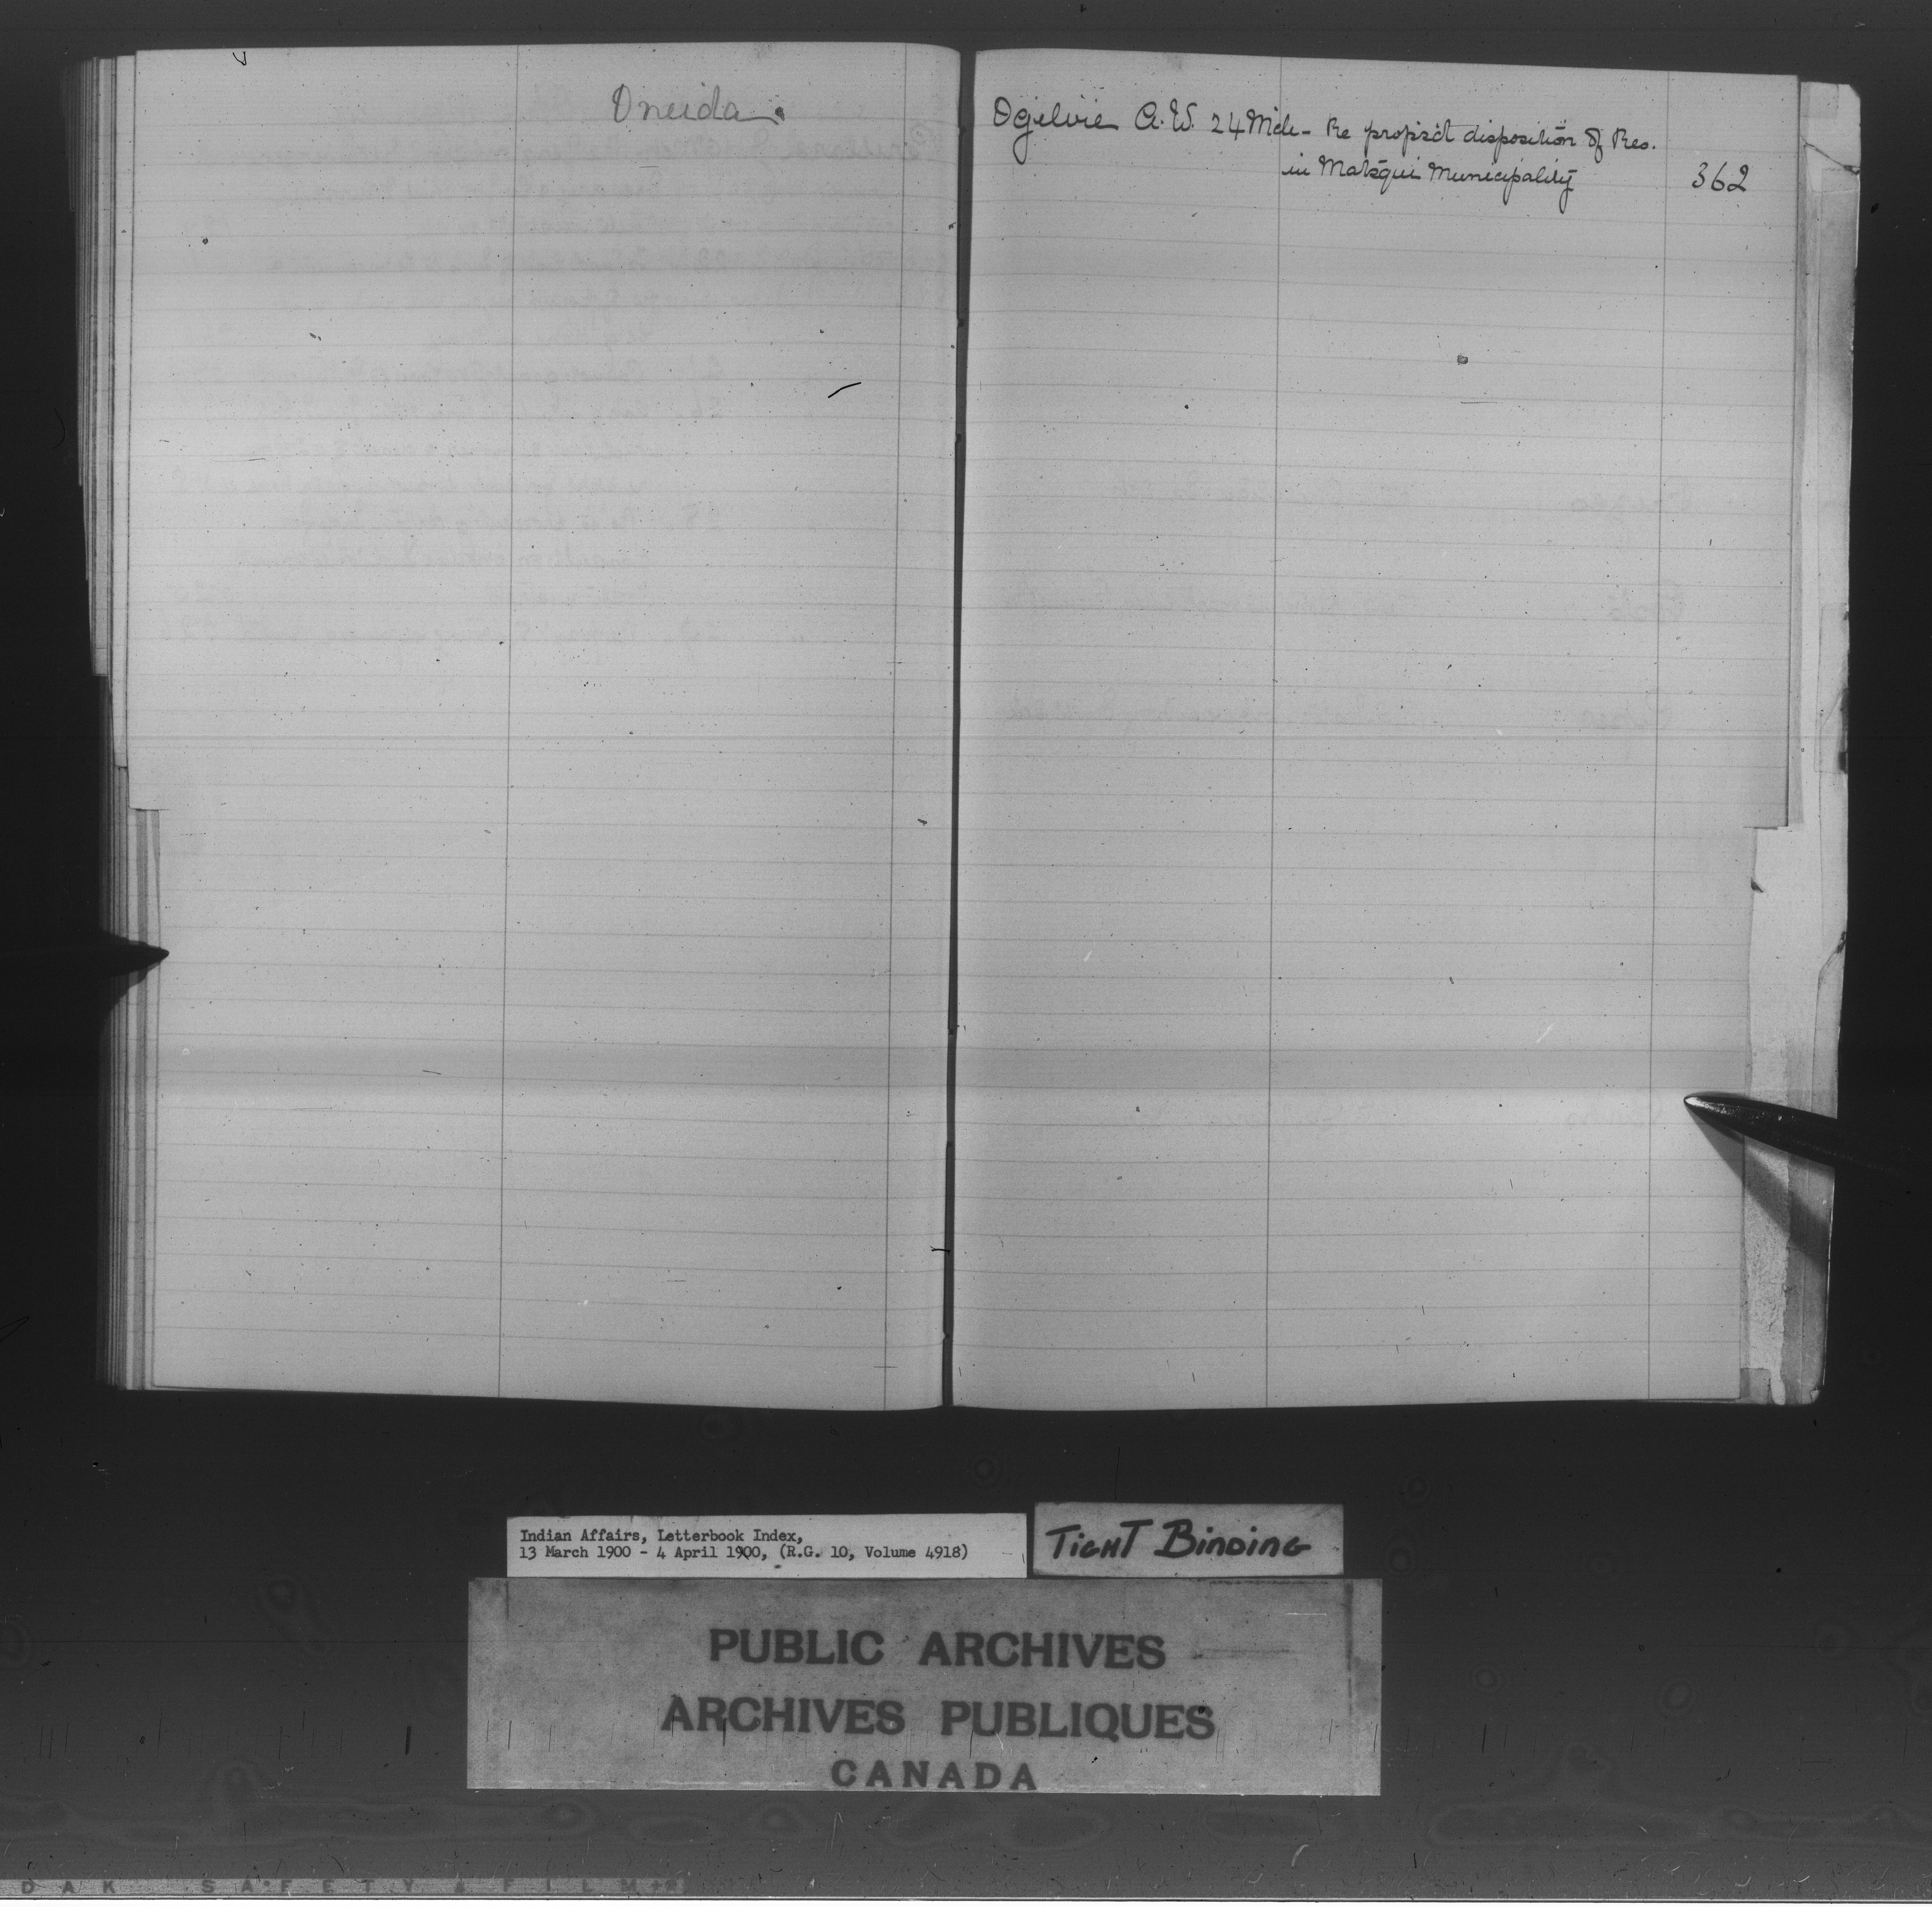 Oneida.
Ogilvie A. W. 24 Mch - Re propsd disposition of Res.
in Matsqui Municipality 362
Indian Affairs, Letterbook Index,
13 March 1900 - 4 April 1900, (R.G. 10, Volume 4918)
TIGHT BINDING
PUBLIC ARCHIVES
ARCHIVES PUBLIQUES
CANADA
DAK SAFETY FILM